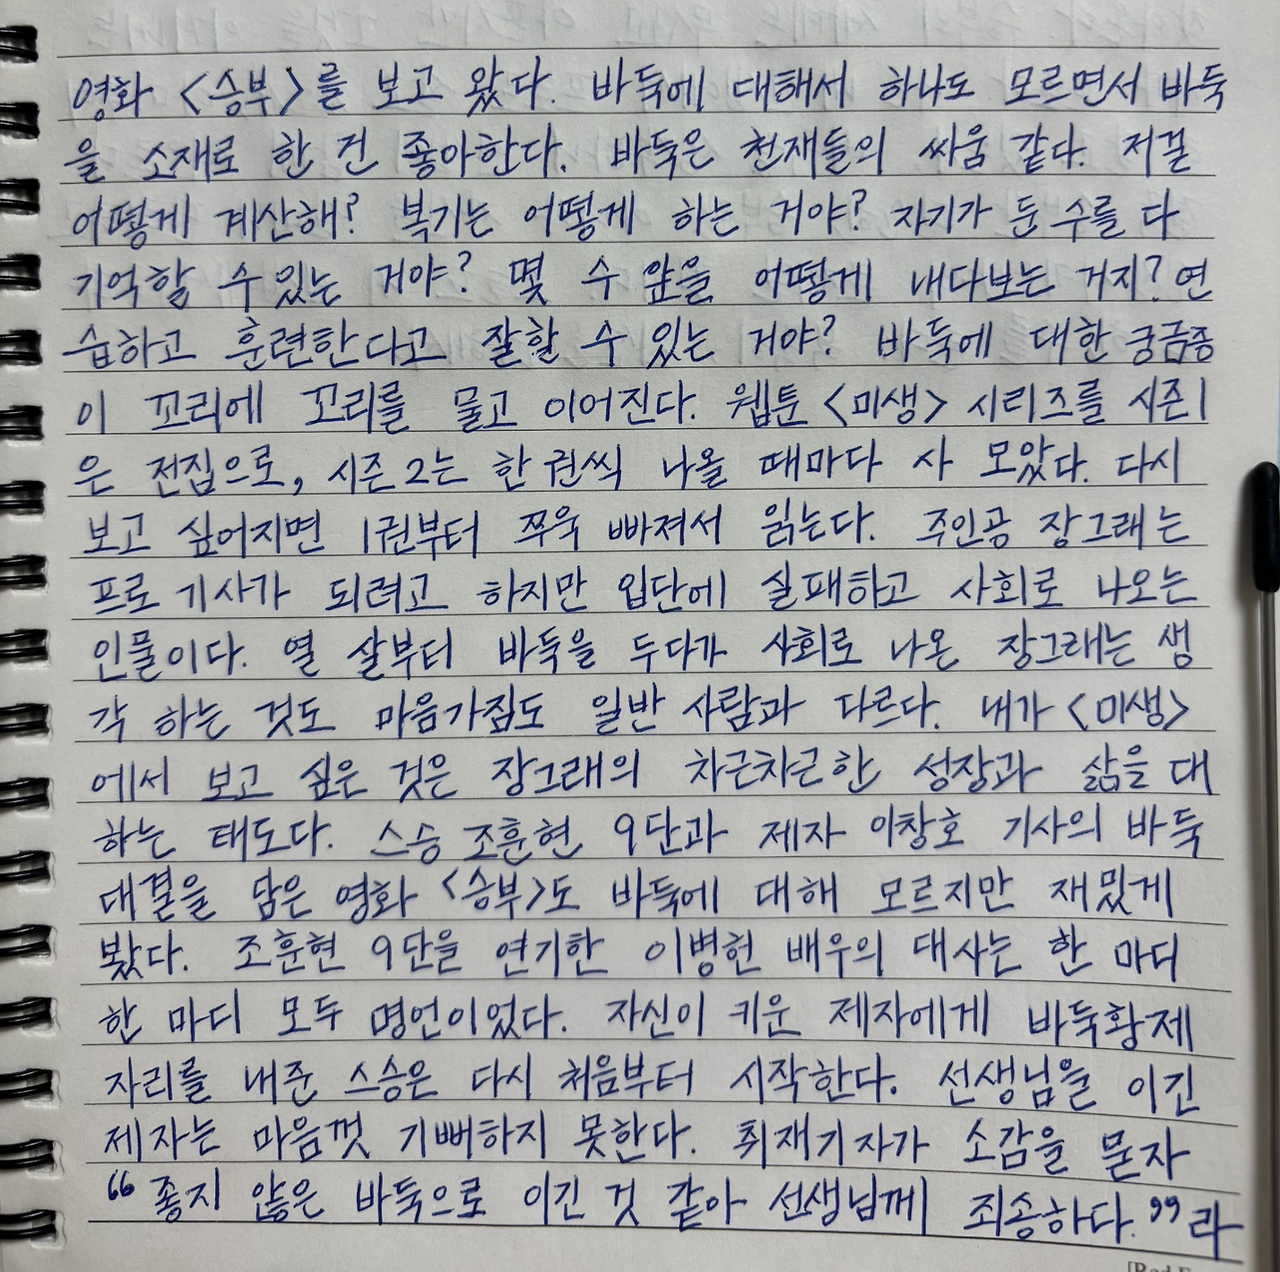 영화 <승부>를 보고 왔다. 바둑에 대해서 하나도 모르면서 바둑
을 소재로 한 건 좋아한다. 바둑은 천재들의 싸움 같다. 저걸
어떻게 계산해? 복기는 어떻게 하는 거야? 자기가 둔 수를 다
기억할 수 있는 거야? 몇 수 앞을 어떻게 내다보는 거지? 연
습하고 훈련한다고 잘할 수 있는 거야? 바둑에 대한 궁금증
이 꼬리에 꼬리를 물고 이어진다. 웹툰 <미생> 시리즈를 시즌1
은 전집으로, 시즌2는 한 권씩 나올 때마다 사 모았다. 다시
보고 싶어지면 1권부터 쭈욱 빠져서 읽는다. 주인공 장그래는
프로 기사가 되려고 하지만 입단에 실패하고 사회로 나오는
인물이다. 열 살부터 바둑을 두다가 사회로 나온 장그래는 생
각 하는 것도 마음가짐도 일반 사람과 다르다. 내가 <미생>
에서 보고 싶은 것은 장그래의 차근차근한 성장과 삶을 대
하는 태도다. 스승 조훈현 9단과 제자 이창호 기사의 바둑
대결을 담은 영화 <승부>도 바둑에 대해 모르지만 재밌게
봤다. 조훈현 9단을 연기한 이병헌 배우의 대사는 한 마디
한 마디 모두 명언이었다. 자신이 키운 제자에게 바둑황제
자리를 내준 스승은 다시 처음부터 시작한다. 선생님을 이긴
제자는 마음껏 기뻐하지 못한다. 취재기자가 소감을 묻자
“좋지 않은 바둑으로 이긴 것 같아 선생님께 죄송하다.”라